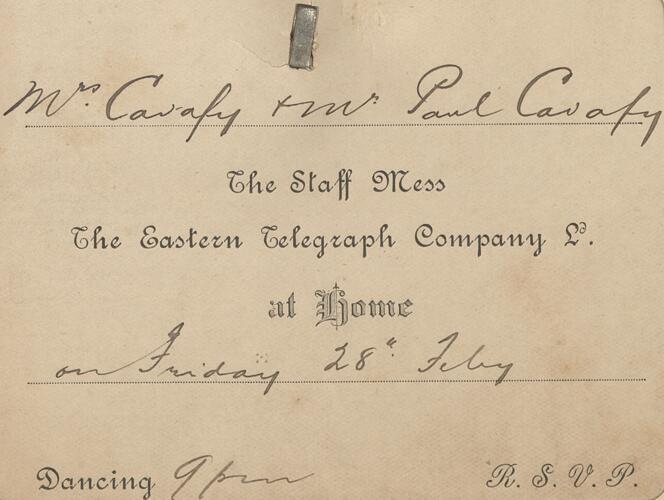 Mrs. Cavafy & Mr. Paul Cavafy
The Staff Mess
The Eastern Telegraph Company Ld.
at Home
on Friday 28th Feby
Dancing 9 pm R. S. V. P.